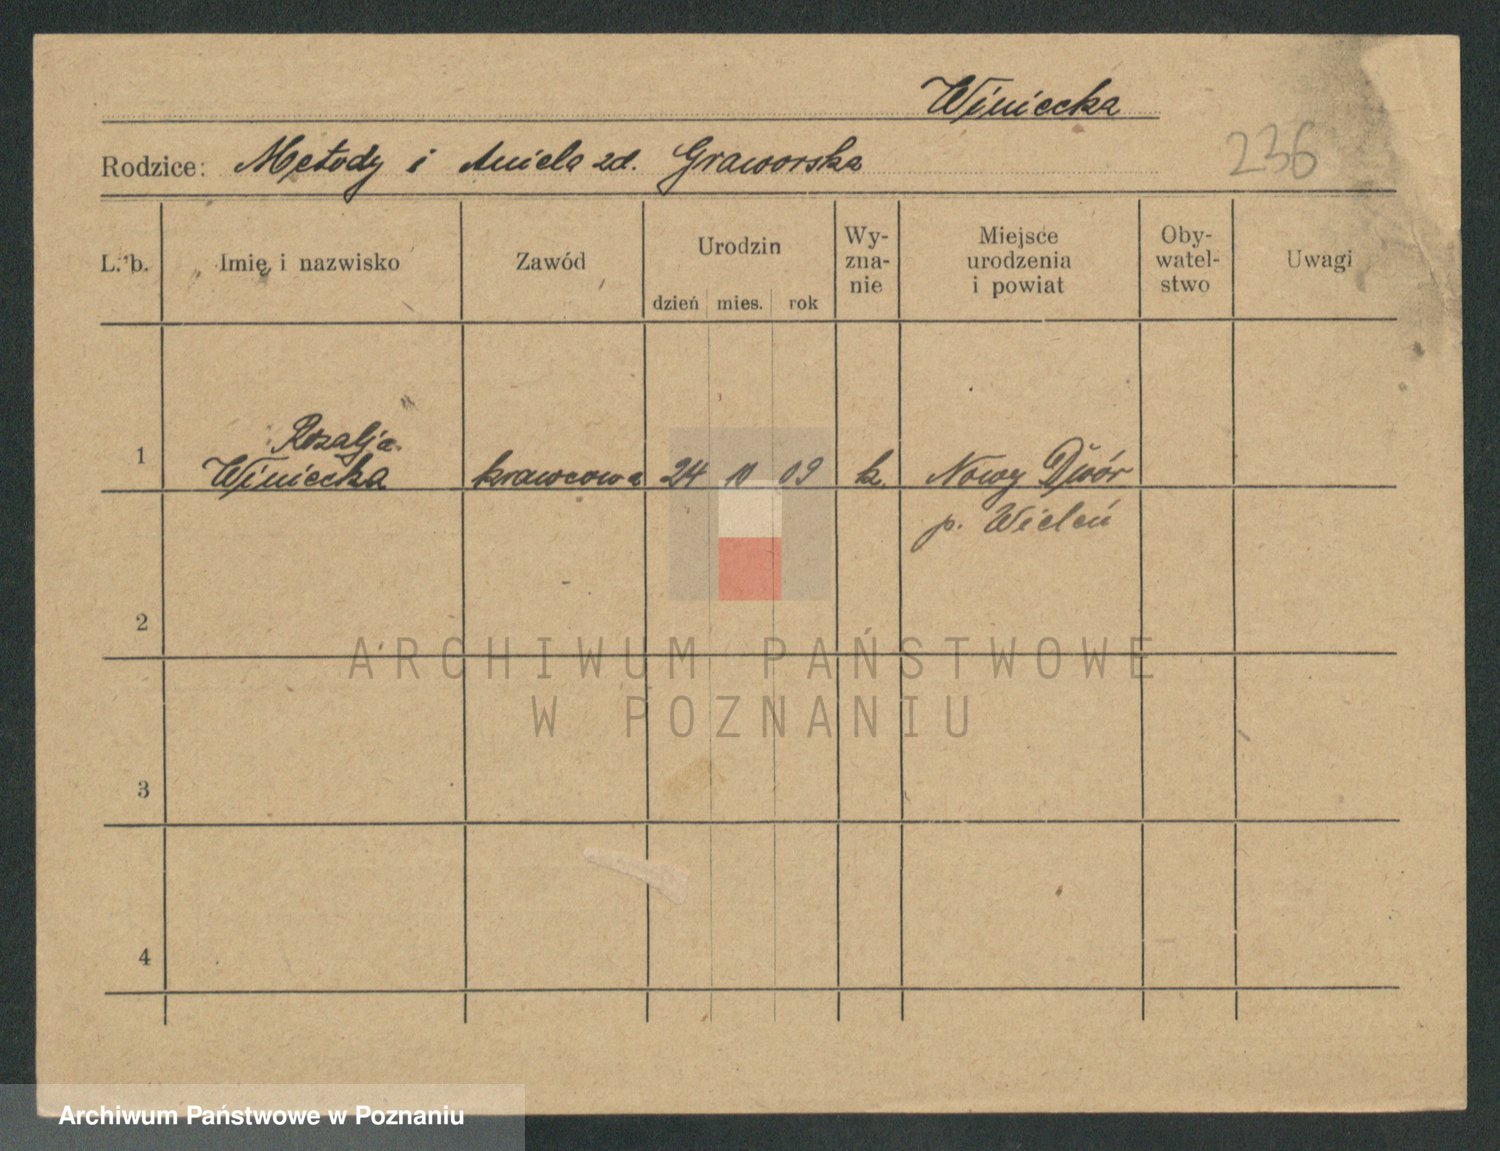 Winiecka
236
Rodzice: Metody i Aniela zd. Graworska
L. b.
Imię i nazwisko
Zawód
Urodzin
dzień mies. rok
Wy-
zna-
nie
Miejsce
urodzenia
i powiat
Oby-
watel-
stwo
Uwagi
1
Rozalja
Winiecka
krawcowa
24 10 09
k.
Nowy Dwór
p. Wieleń
2
ARCHIWUM PAŃSTWOWE
W POZNANIU
3
4
Archiwum Państwowe w Poznaniu